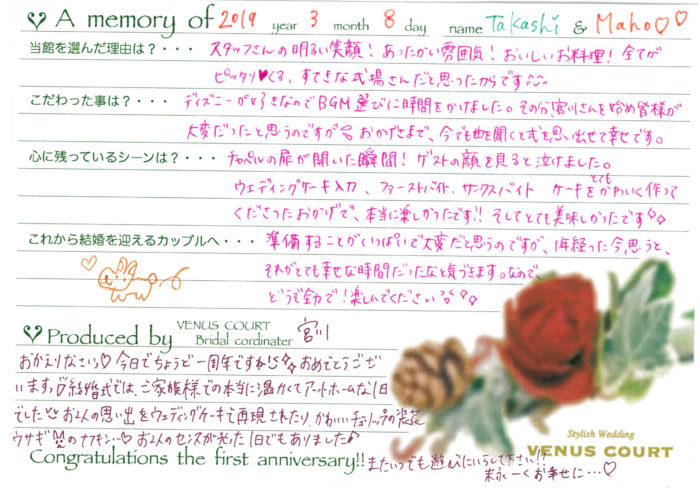 A memory of 2019 year 3 month 8 day name Takashi & Maho♡♡
当館を選んだ理由は？・・・ スタッフさんの明るい笑顔！あったかい雰囲気！おいしいお料理！全てが
ピッタリ♥くる、すてきな式場さんだと思ったからです
こだわった事は？・・・ ディズニーが好きなのでBGM選びに時間をかけました。その分、宮川さんを始め皆様が
大変だったと思うのですが おかげさまで、今でも曲を聞くと式を思い出せて幸せです。
心に残っているシーンは？・・・ チャペルの扉が開いた瞬間！ゲストの顔を見ると泣けました。
ウェディングケーキ入刀、ファーストバイト、サンクスバイト ケーキをとてもかわいく作って
くださったおかげで、本当に楽しかったです!! そしてとても美味しかったです
これから結婚を迎えるカップルへ・・・ 準備することがいっぱいで大変だと思うのですが、1年経った今思うと、
それがとても幸せな時間だったなと気づきます。なので、
どうぞ全力で！楽しんでください
Produced by VENUS COURT Bridal cordinater 宮川
おかえりなさい♡今日でちょうど一周年ですね おめでとうござ
います。結婚式では、ご家族様での本当に温かくてアットホームな1日
でした お2人の思い出をウェディングケーキで再現されたり、かわいいチューリップの装花
ウサギのナプキン…♡ お2人のセンスが光った1日でもありました♪
Congratulations the first anniversary!! またいつでも遊びにいらして下さい!!
末永〜くお幸せに…♡
Stylish Wedding
VENUS COURT